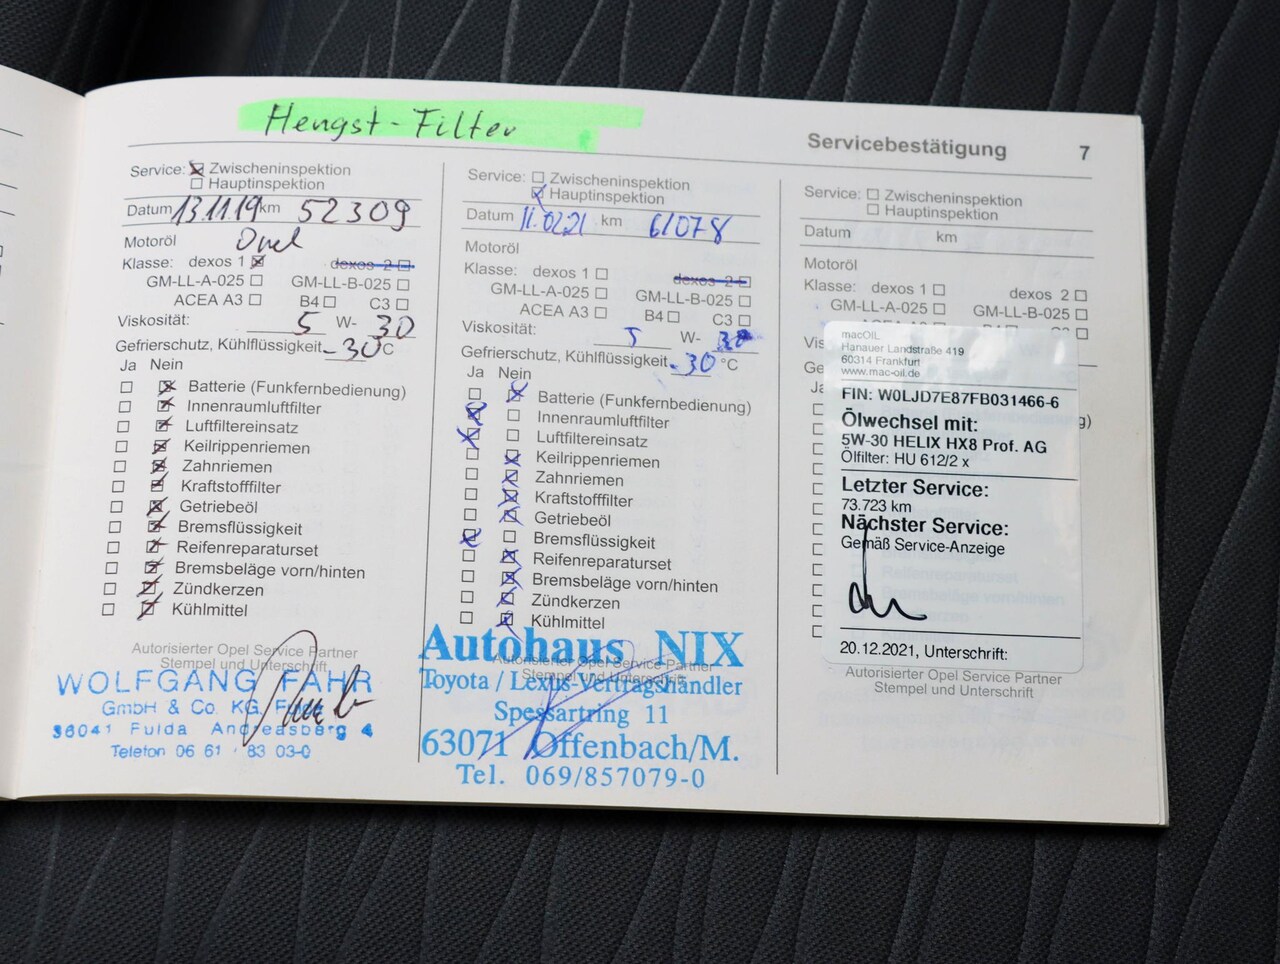 Hengst-Filter
Servicebestätigung 7
Service: Zwischeninspektion
Hauptinspektion
Datum 13.11.19 km 52309
Motoröl Opel
Klasse: dexos 1 dexos 2
GM-LL-A-025 GM-LL-B-025
ACEA A3 B4 C3
Viskosität: 5 W- 30
Gefrierschutz, Kühlflüssigkeit -30°C
Ja Nein
Batterie (Funkfernbedienung)
Innenraumluftfilter
Luftfiltereinsatz
Keilrippenriemen
Zahnriemen
Kraftstofffilter
Getriebeöl
Bremsflüssigkeit
Reifenreparaturset
Bremsbeläge vorn/hinten
Zündkerzen
Kühlmittel
Autorisierter Opel Service Partner
Stempel und Unterschrift
WOLFGANG FAHR
GmbH & Co. KG, Fulda
36041 Fulda Andreasberg 4
Telefon 06 61 / 83 03-0
Service: Zwischeninspektion
Hauptinspektion
Datum 11.02.21 km 61078
Motoröl
Klasse: dexos 1 dexos 2
GM-LL-A-025 GM-LL-B-025
ACEA A3 B4 C3
Viskosität: 5 W- 30
Gefrierschutz, Kühlflüssigkeit -30 °C
Ja Nein
Batterie (Funkfernbedienung)
Innenraumluftfilter
Luftfiltereinsatz
Keilrippenriemen
Zahnriemen
Kraftstofffilter
Getriebeöl
Bremsflüssigkeit
Reifenreparaturset
Bremsbeläge vorn/hinten
Zündkerzen
Kühlmittel
Autorisierter Opel Service Partner
Stempel und Unterschrift
Autohaus NIX
Toyota / Lexus-Vertragshändler
Spessartring 11
63071 Offenbach/M.
Tel. 069/857079-0
Service: Zwischeninspektion
Hauptinspektion
Datum km
Motoröl
Klasse: dexos 1 dexos 2
GM-LL-A-025 GM-LL-B-025
macOIL
Hanauer Landstraße 419
60314 Frankfurt
www.mac-oil.de
FIN: W0LJD7E87FB031466-6
Ölwechsel mit:
5W-30 HELIX HX8 Prof. AG
Ölfilter: HU 612/2 x
Letzter Service:
73.723 km
Nächster Service:
Gemäß Service-Anzeige
20.12.2021, Unterschrift:
Autorisierter Opel Service Partner
Stempel und Unterschrift